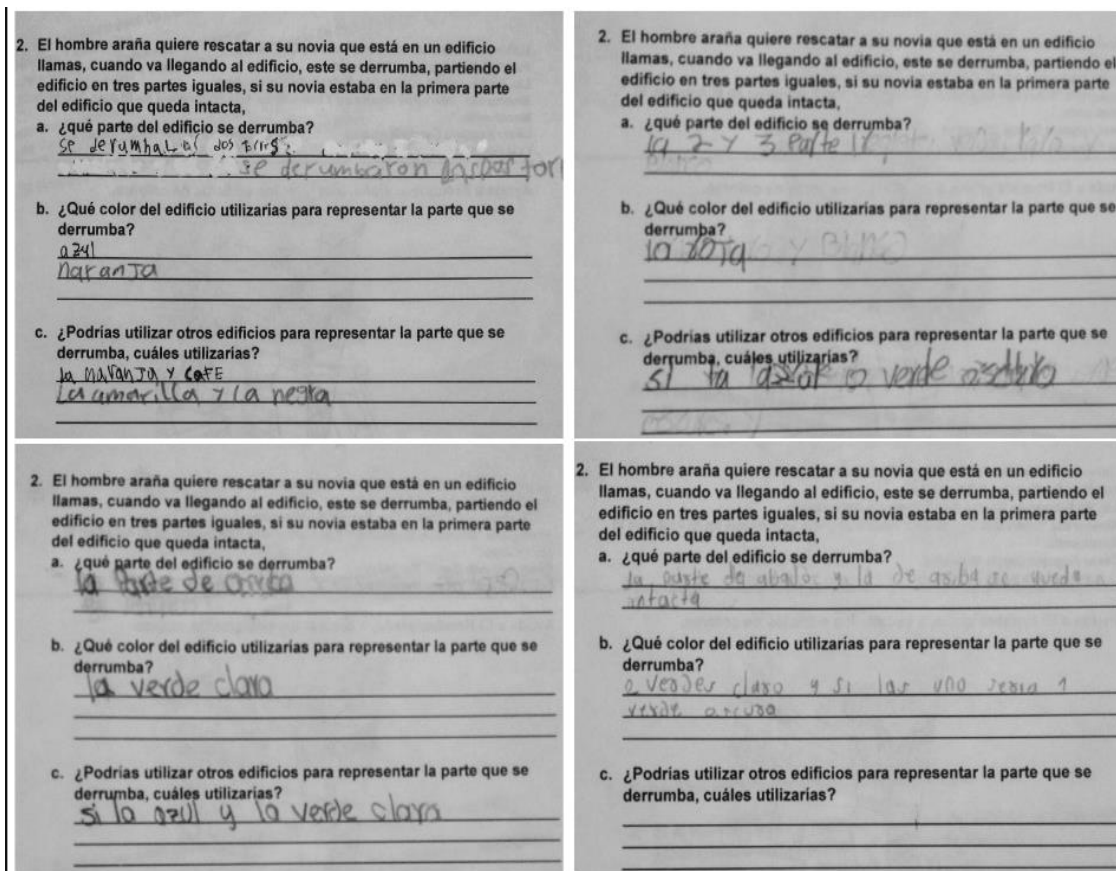 2. El hombre araña quiere rescatar a su novia que está en un edificio
llamas, cuando va llegando al edificio, este se derrumba, partiendo el
edificio en tres partes iguales, si su novia estaba en la primera parte
del edificio que queda intacta,
a. ¿qué parte del edificio se derrumba?
se derumba dos
se derumbaron
b. ¿Qué color del edificio utilizarías para representar la parte que se
derrumba?
azul
naranja
c. ¿Podrías utilizar otros edificios para representar la parte que se
derrumba, cuáles utilizarías?
la naranja y cafe
la amarilla y la negra
2. El hombre araña quiere rescatar a su novia que está en un edificio
llamas, cuando va llegando al edificio, este se derrumba, partiendo el
edificio en tres partes iguales, si su novia estaba en la primera parte
del edificio que queda intacta,
a. ¿qué parte del edificio se derrumba?
la 2 y 3 parte
b. ¿Qué color del edificio utilizarías para representar la parte que se
derrumba?
la roja
c. ¿Podrías utilizar otros edificios para representar la parte que se
derrumba, cuáles utilizarías?
si la o verde
2. El hombre araña quiere rescatar a su novia que está en un edificio
llamas, cuando va llegando al edificio, este se derrumba, partiendo el
edificio en tres partes iguales, si su novia estaba en la primera parte
del edificio que queda intacta,
a. ¿qué parte del edificio se derrumba?
la parte de arriba
b. ¿Qué color del edificio utilizarías para representar la parte que se
derrumba?
la verde clara
c. ¿Podrías utilizar otros edificios para representar la parte que se
derrumba, cuáles utilizarías?
si la azul y la verde clara
2. El hombre araña quiere rescatar a su novia que está en un edificio
llamas, cuando va llegando al edificio, este se derrumba, partiendo el
edificio en tres partes iguales, si su novia estaba en la primera parte
del edificio que queda intacta,
a. ¿qué parte del edificio se derrumba?
la parte de y la de se queda
intacta
b. ¿Qué color del edificio utilizarías para representar la parte que se
derrumba?
2 verdes claro y si las uno seria 1
verde
c. ¿Podrías utilizar otros edificios para representar la parte que se
derrumba, cuáles utilizarías?